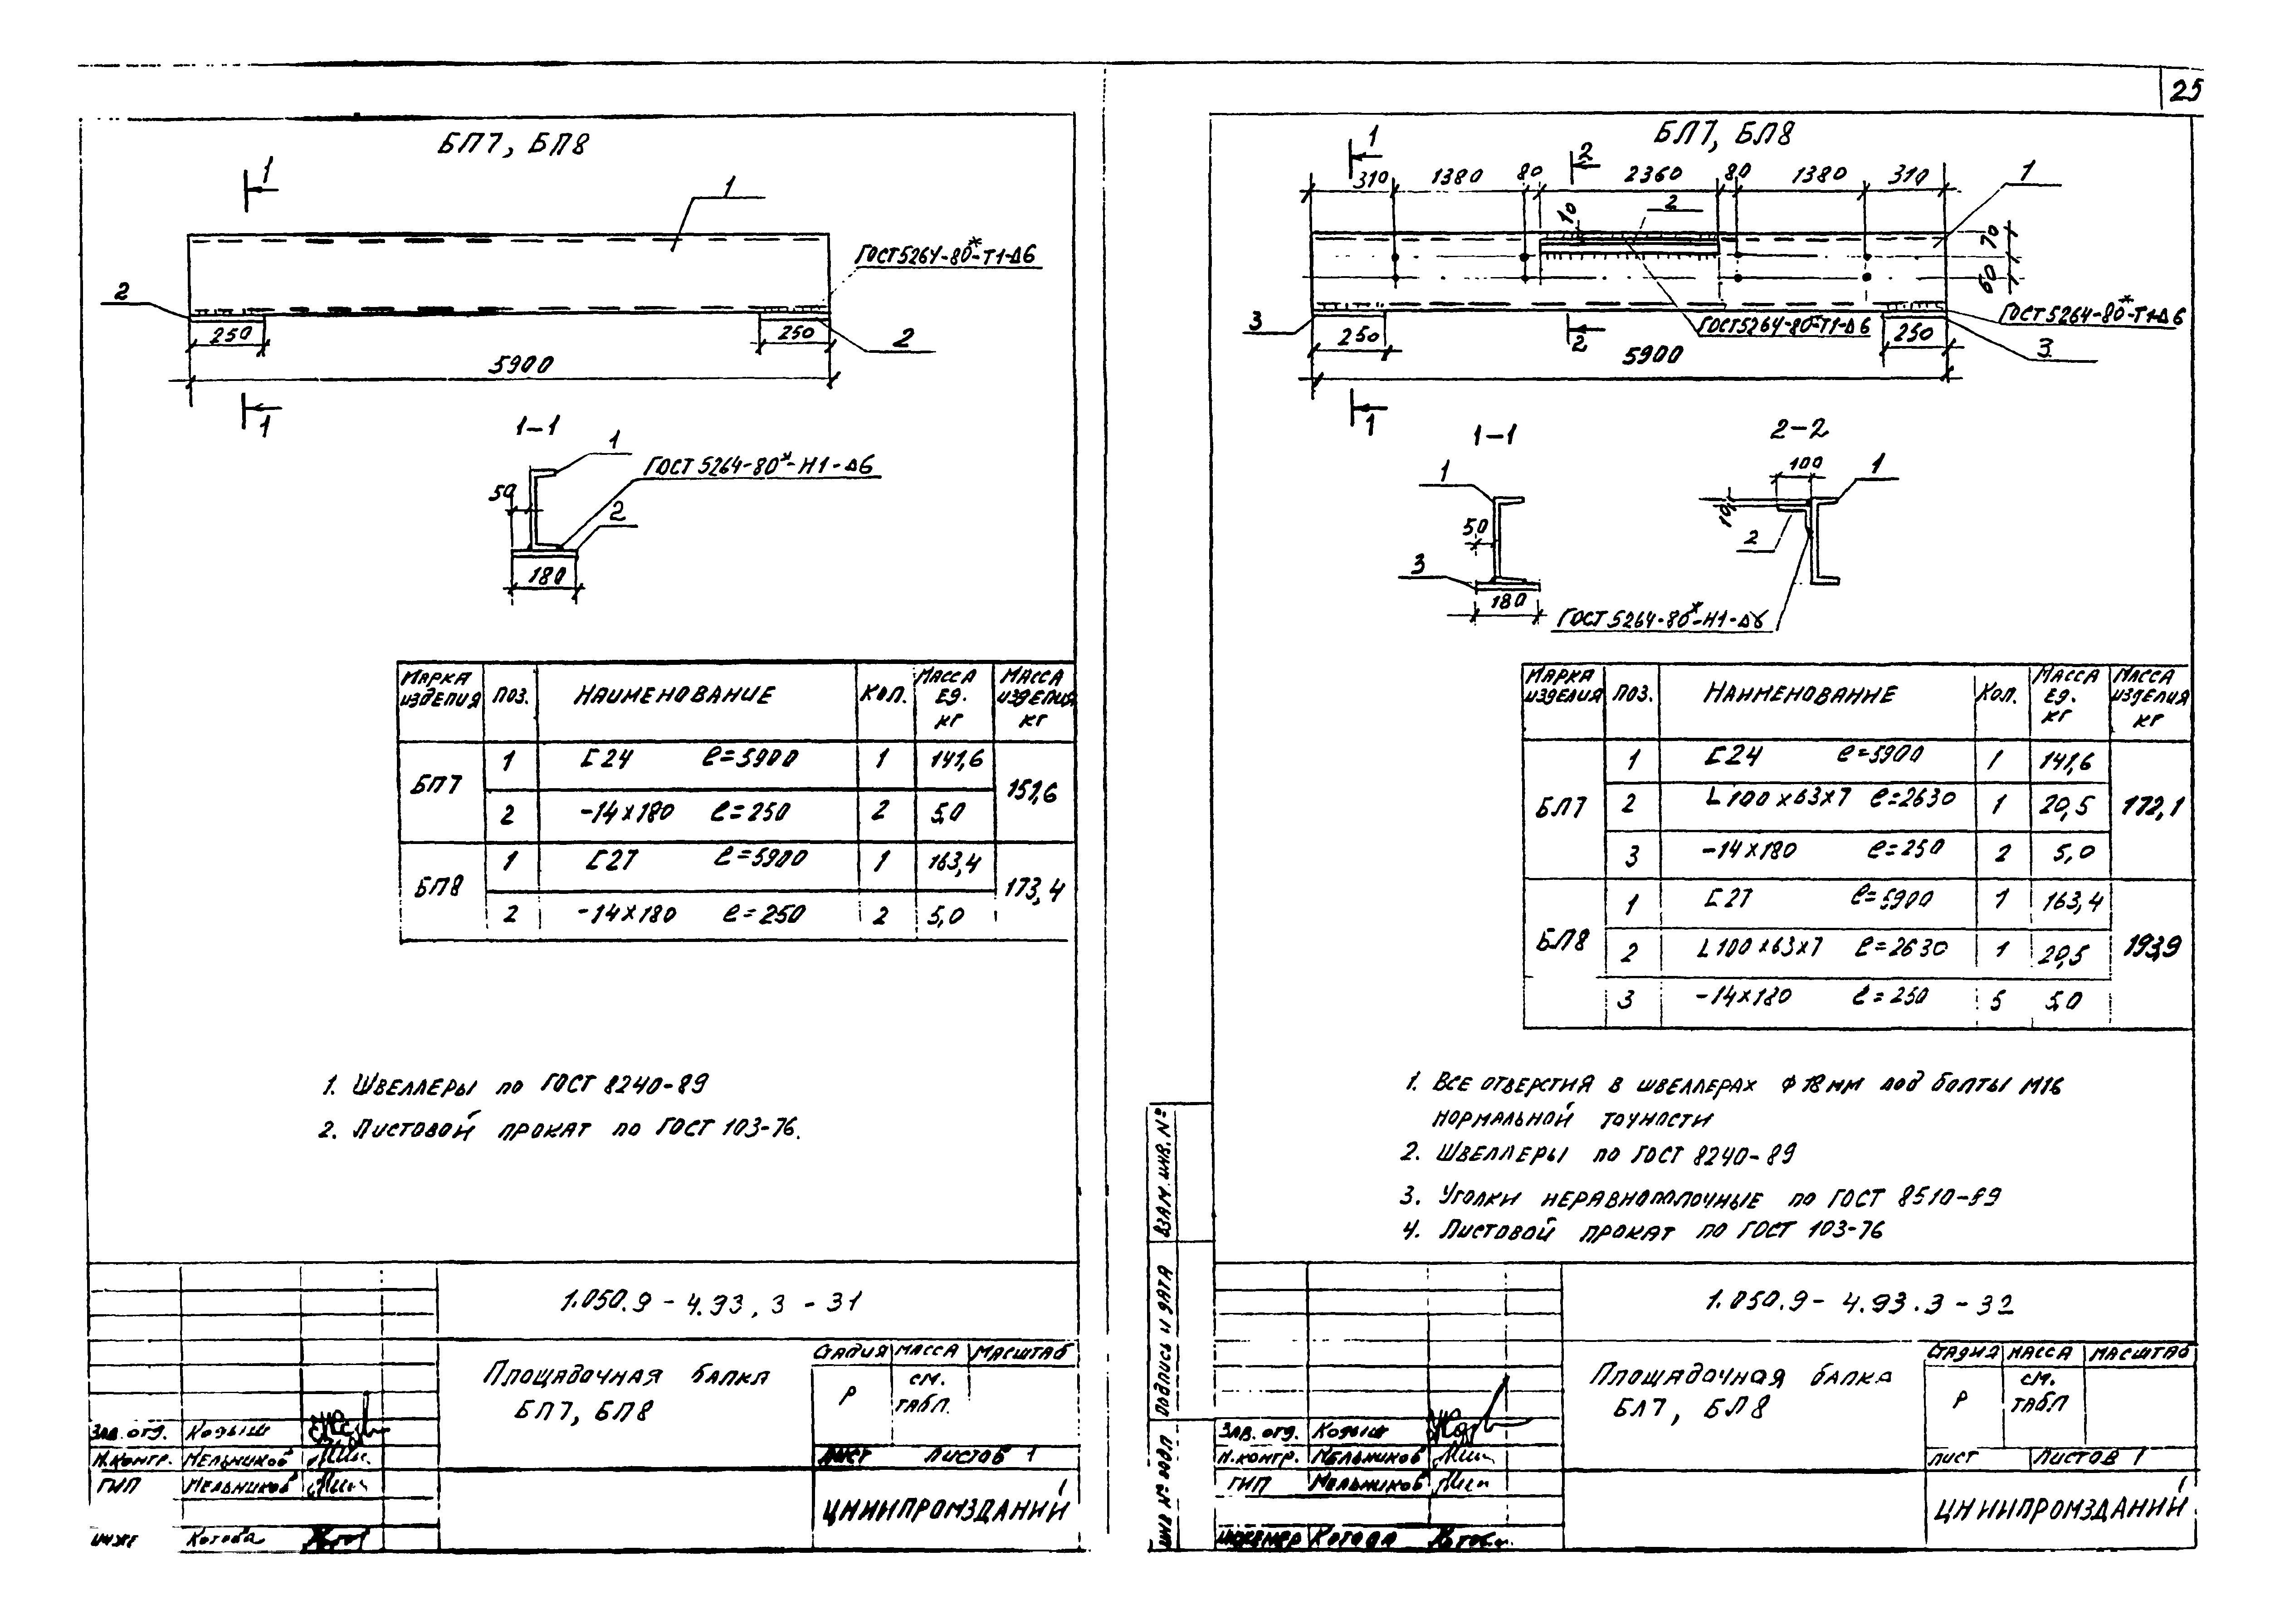 25
БП7, БП8
1
1
ГОСТ 5264-80*-Т1-Δ6
2
250
250
2
5900
1
1-1
1
ГОСТ 5264-80*-Н1-Δ6
50
2
180
МАРКА ИЗДЕЛИЯ ПОЗ. НАИМЕНОВАНИЕ КОЛ. МАССА ЕД. КГ МАССА ИЗДЕЛИЯ КГ
БП7 1 [24 ℓ=5900 1 141,6 151,6
2 -14×180 ℓ=250 2 5,0
БП8 1 [27 ℓ=5900 1 163,4 173,4
2 -14×180 ℓ=250 2 5,0
1. ШВЕЛЛЕРЫ ПО ГОСТ 8240-89
2. ЛИСТОВОЙ ПРОКАТ ПО ГОСТ 103-76.
1.050.9-4.93.3-31
ПЛОЩАДОЧНАЯ БАЛКА
БП7, БП8
СТАДИЯ МАССА МАСШТАБ
Р СМ. ТАБЛ.
ЛИСТ ЛИСТОВ 1
ЦНИИПРОМЗДАНИЙ
ЗАВ. ОТД. КОДЫШ
Н.КОНТР. МЕЛЬНИКОВ
ГИП МЕЛЬНИКОВ
ИНЖ КОТОВА
БЛ7, БЛ8
1
2
310 1380 80 2360 80 1380 310
1
10
2
70
60
3
250
ГОСТ 5264-80*-Т1-Δ6
ГОСТ 5264-80*-Т1-Δ6
250
2
3
5900
1
1-1
1
50
3
180
2-2
100
1
10
2
ГОСТ 5264-80*-Н1-Δ6
МАРКА ИЗДЕЛИЯ ПОЗ. НАИМЕНОВАНИЕ КОЛ. МАССА ЕД. КГ МАССА ИЗДЕЛИЯ КГ
БЛ7 1 [24 ℓ=5900 1 141,6 172,1
2 L100×63×7 ℓ=2630 1 20,5
3 -14×180 ℓ=250 2 5,0
БЛ8 1 [27 ℓ=5900 1 163,4 193,9
2 L100×63×7 ℓ=2630 1 20,5
3 -14×180 ℓ=250 5 5,0
1. ВСЕ ОТВЕРСТИЯ В ШВЕЛЛЕРАХ Ф 18 ММ ПОД БОЛТЫ М16
НОРМАЛЬНОЙ ТОЧНОСТИ
2. ШВЕЛЛЕРЫ ПО ГОСТ 8240-89
3. УГОЛКИ НЕРАВНОПОЛОЧНЫЕ ПО ГОСТ 8510-89
4. ЛИСТОВОЙ ПРОКАТ ПО ГОСТ 103-76
ИНВ № ПОДЛ ПОДПИСЬ И ДАТА ВЗАМ. ИНВ. №
1.050.9-4.93.3-32
ПЛОЩАДОЧНАЯ БАЛКА
БЛ7, БЛ8
СТАДИЯ МАССА МАСШТАБ
Р СМ. ТАБЛ
ЛИСТ ЛИСТОВ 1
ЦНИИПРОМЗДАНИЙ
ЗАВ. ОТД. КОДЫШ
Н.КОНТР. МЕЛЬНИКОВ
ГИП МЕЛЬНИКОВ
ИНЖЕНЕР КОТОВА